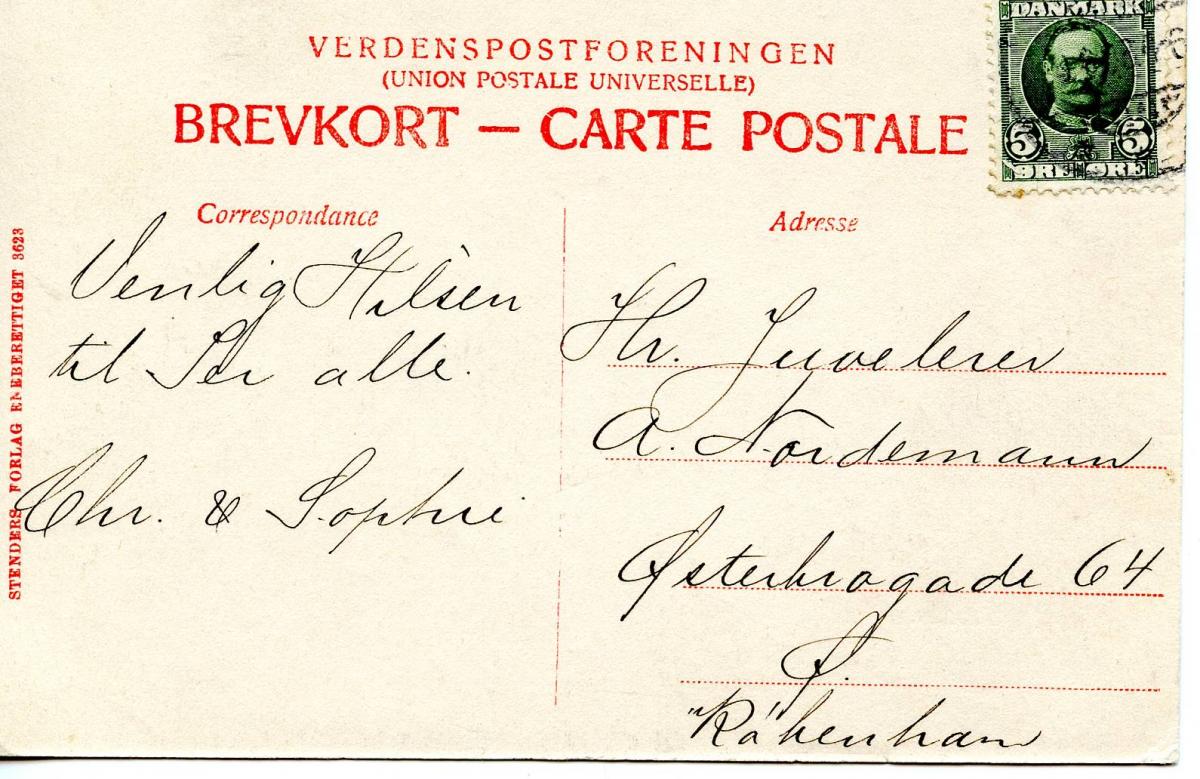 VERDENSPOSTFORENINGEN
(UNION POSTALE UNIVERSELLE)
BREVKORT — CARTE POSTALE
DANMARK
5 5
ØRE ØRE
Correspondance
Venlig Hilsen
til Jer alle.
Chr. & Sophie
Adresse
Hr. Juvelerer
A. Nordemann
Østerbrogade 64
Ø.
"København
STENDERS FORLAG ENEBERETTIGET 3623